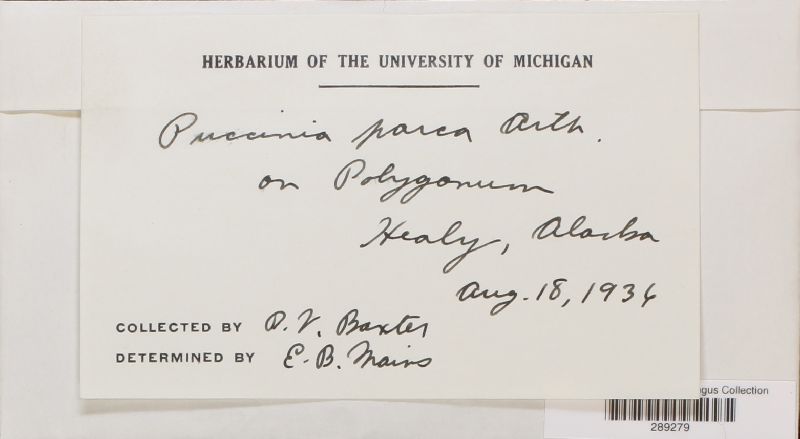 HERBARIUM OF THE UNIVERSITY OF MICHIGAN
Puccinia parca Arth.
on Polygonum
Healy, Alaska
Aug. 18, 1936
COLLECTED BY D. V. Baxter
DETERMINED BY E. B. Mains
ngus Collection
289279